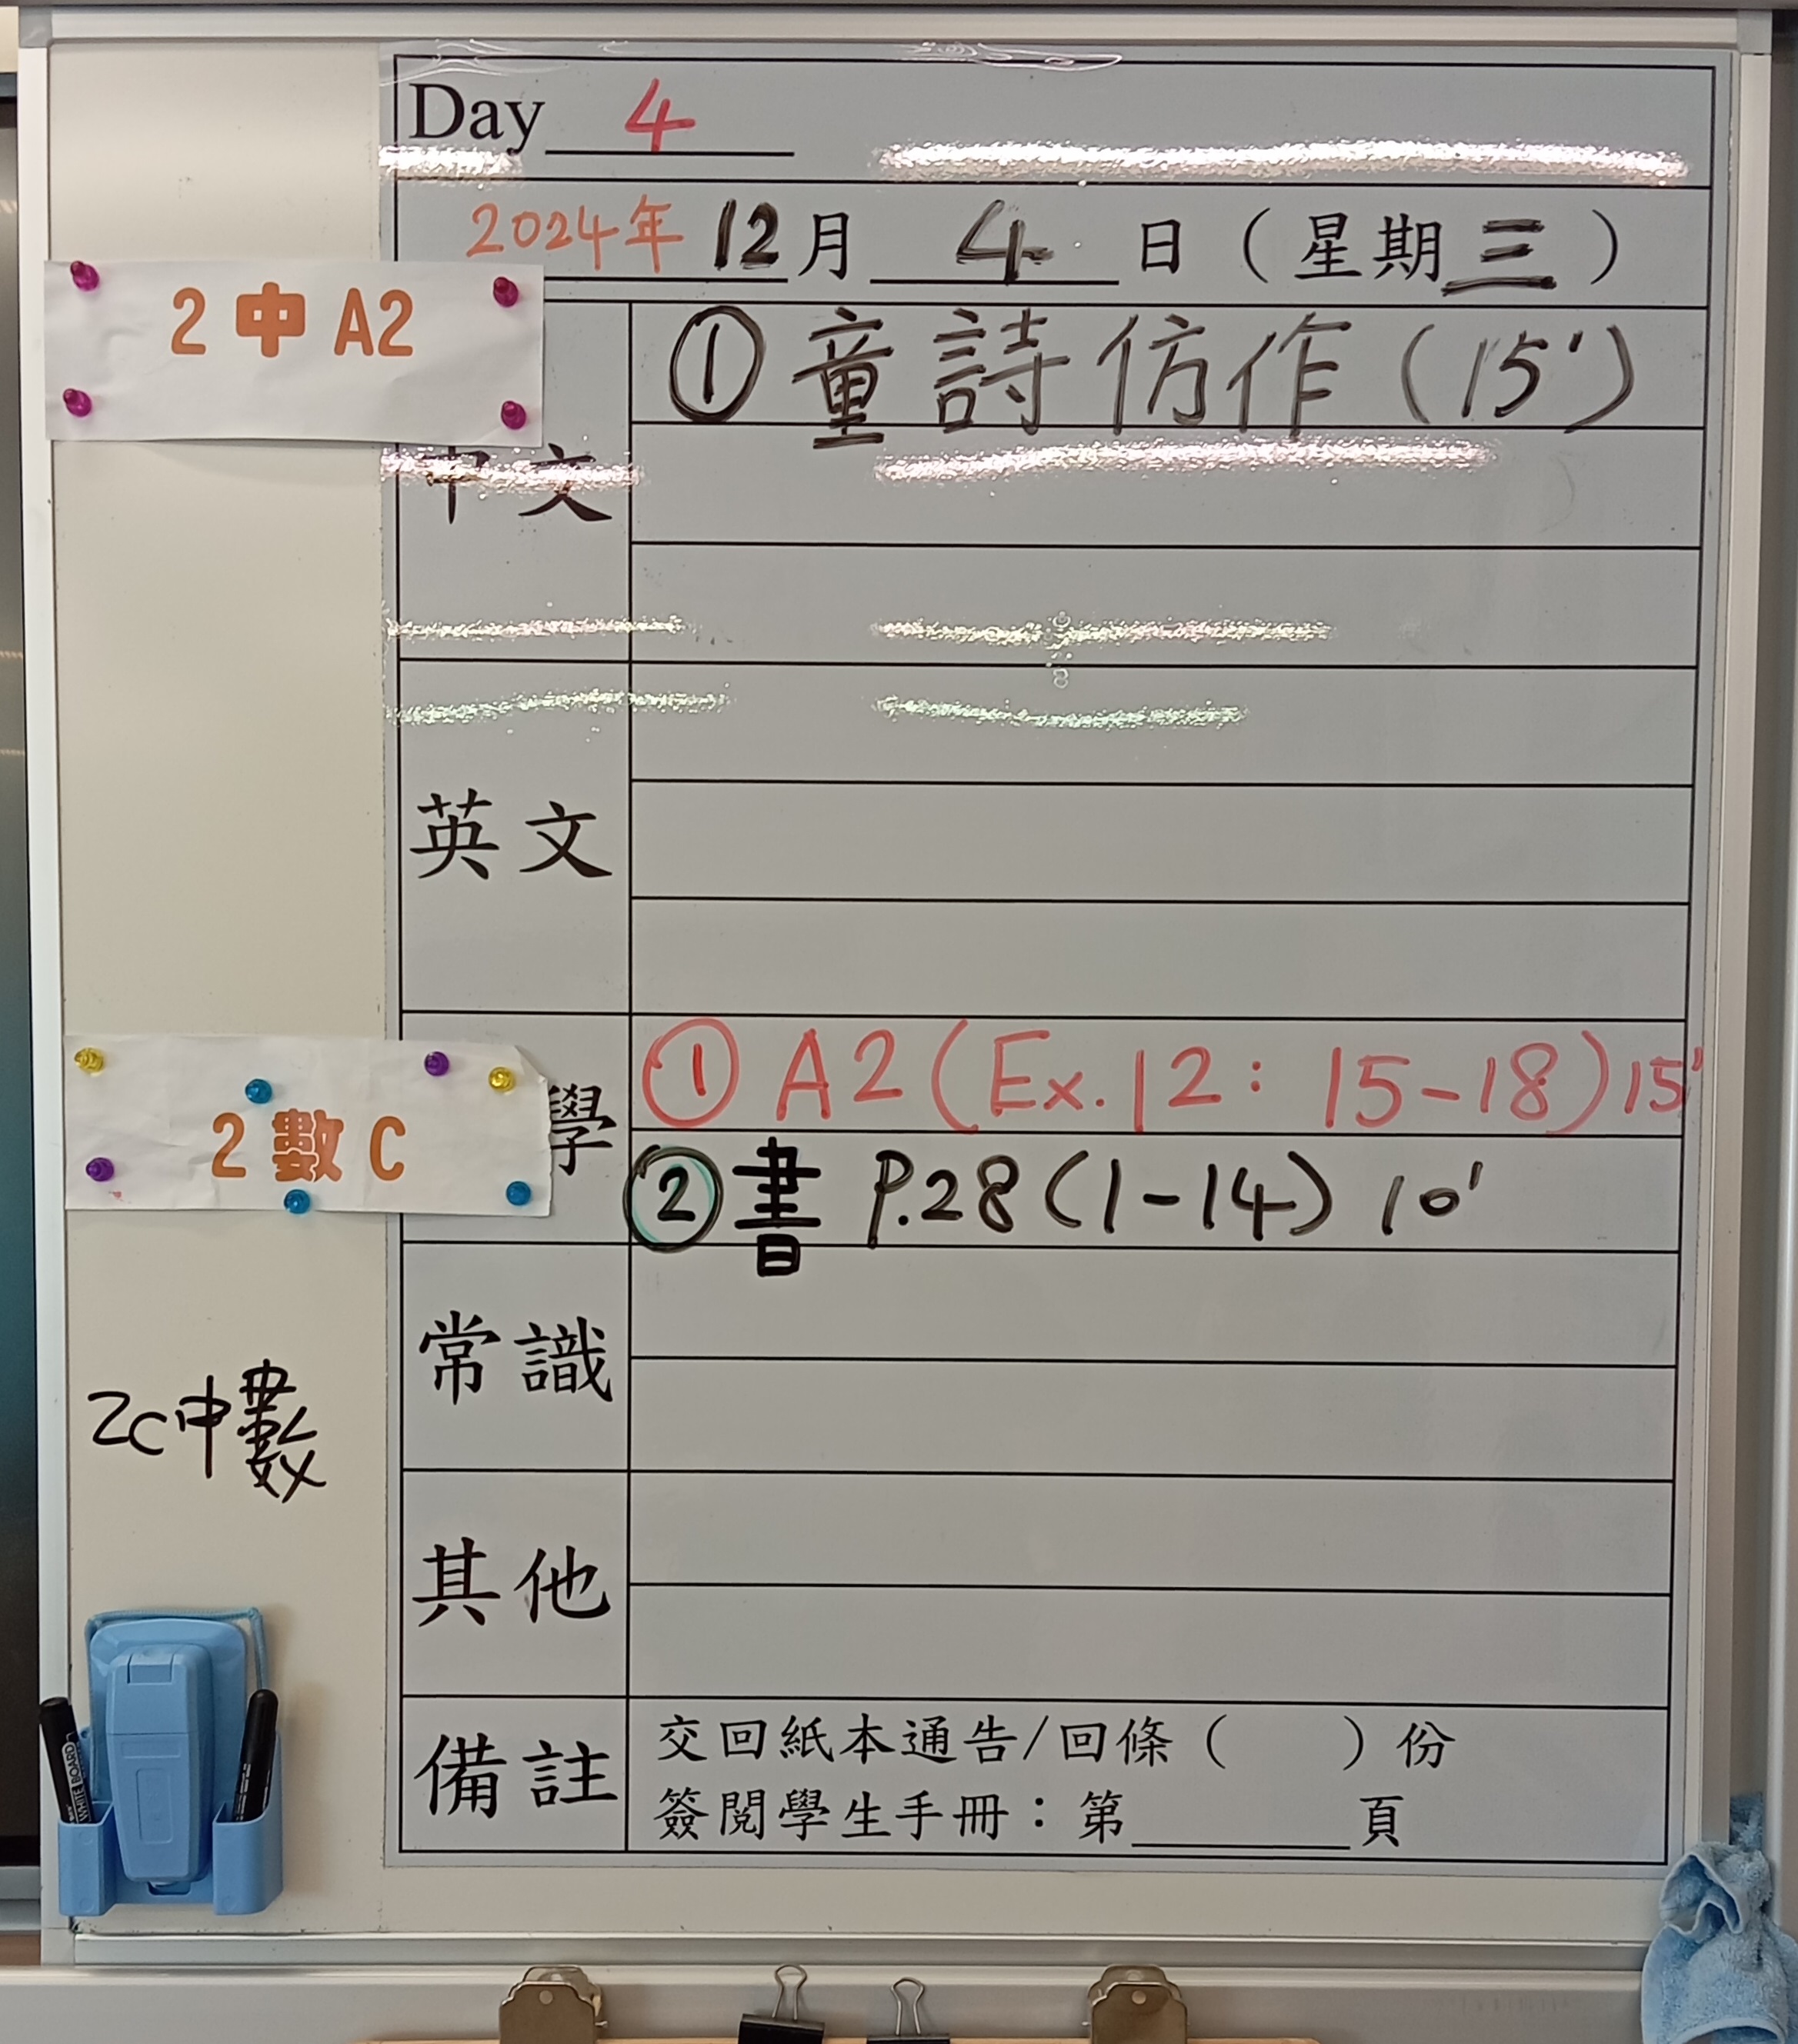 Day 4
2024年 12月 4 日（星期三）
2 中 A2
① 童詩仿作 (15')
中文
英文
2 數 C
學
① A2 (Ex.12: 15-18) 15'
② 書 P.28 (1-14) 10'
常識
2C中數
其他
備註
交回紙本通告/回條（ ）份
簽閱學生手冊：第______頁
WHITE BOARD